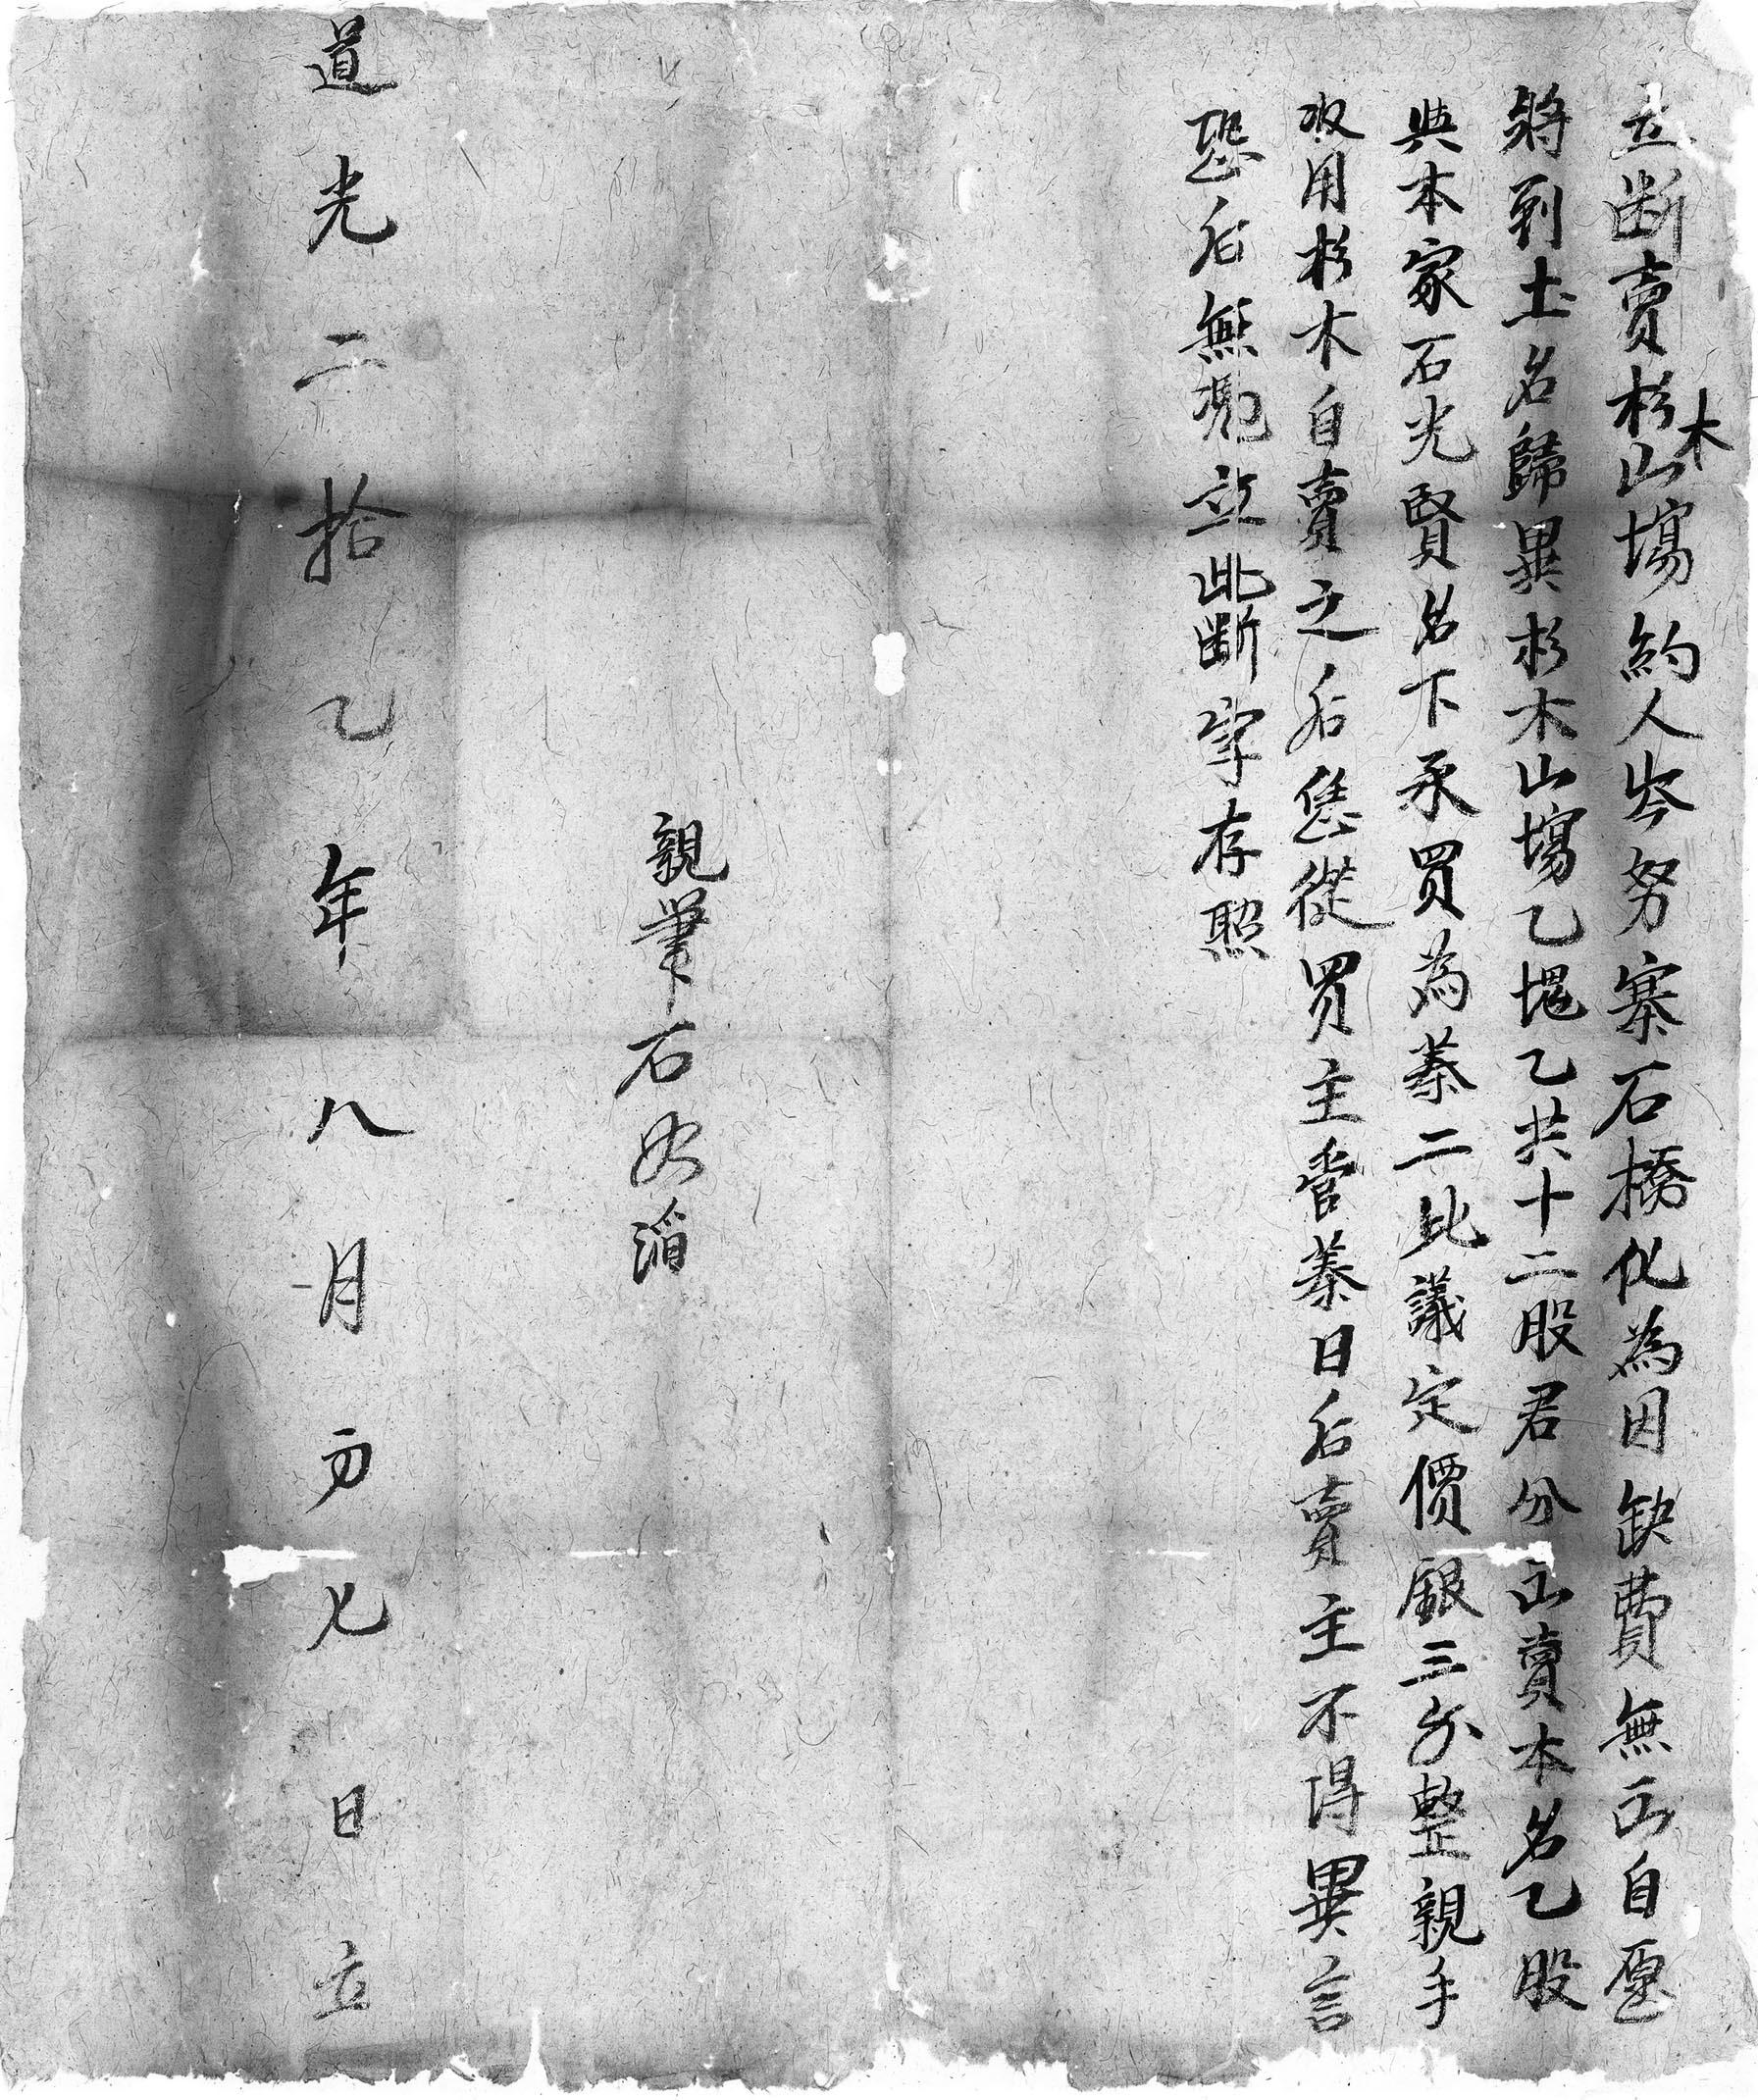 立断賣杉木山塲約人岑努寨石橋化為因缺費無出自愿
將到土名歸異杉木山塲乙塊乙共十二股君分出賣本名乙股
與本家石光賢名下承買為業二比議定價銀三分整親手
收用杉木自賣之后恁從買主管業日后賣主不得異言
恐后無凴立此断字存照
親筆石 滔
道光二拾乙年八月初七日立